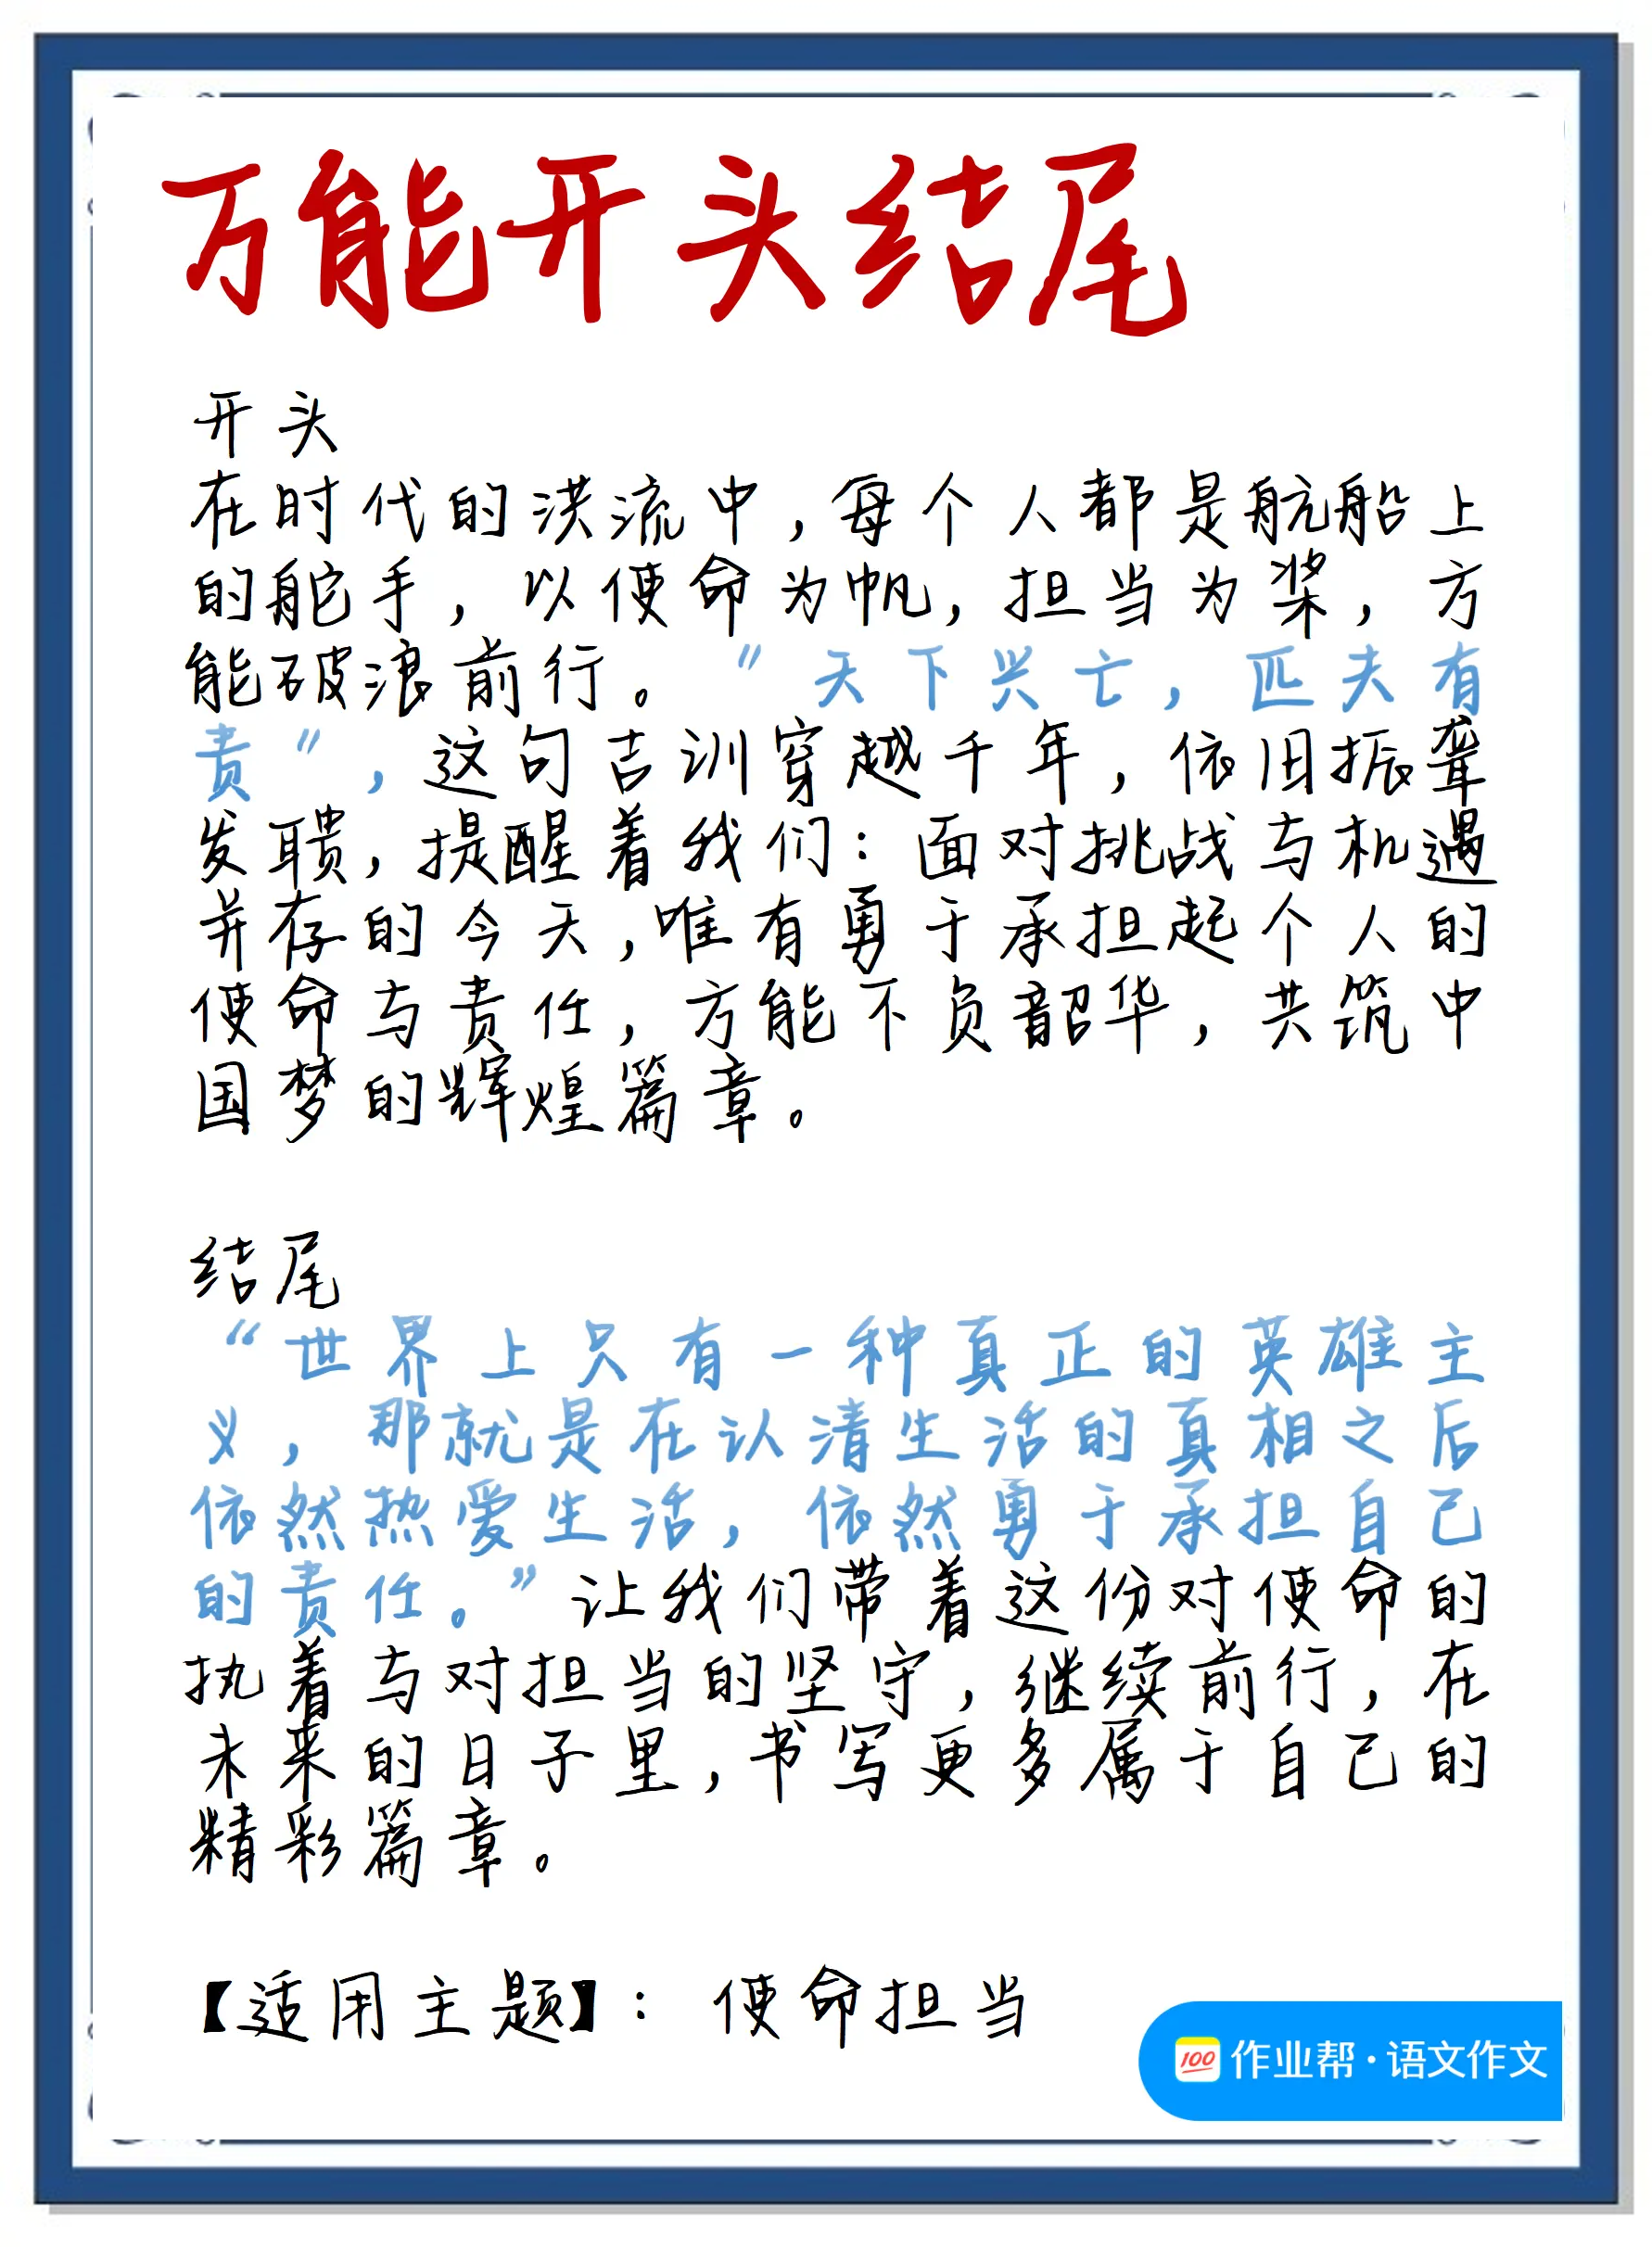 万能开头结尾
开头
在时代的洪流中，每个人都是航船上
的舵手，以使命为帆，担当为桨，方
能破浪前行。"天下兴亡，匹夫有
责"，这句古训穿越千年，依旧振聋
发聩，提醒着我们：面对挑战与机遇
并存的今天，唯有勇于承担起个人的
使命与责任，方能不负韶华，共筑中
国梦的辉煌篇章。
结尾
“世界上只有一种真正的英雄主
义，那就是在认清生活的真相之后
依然热爱生活，依然勇于承担自己
的责任。”让我们带着这份对使命的
执着与对担当的坚守，继续前行，在
未来的日子里，书写更多属于自己的
精彩篇章。
【适用主题】：使命担当
100 作业帮·语文作文